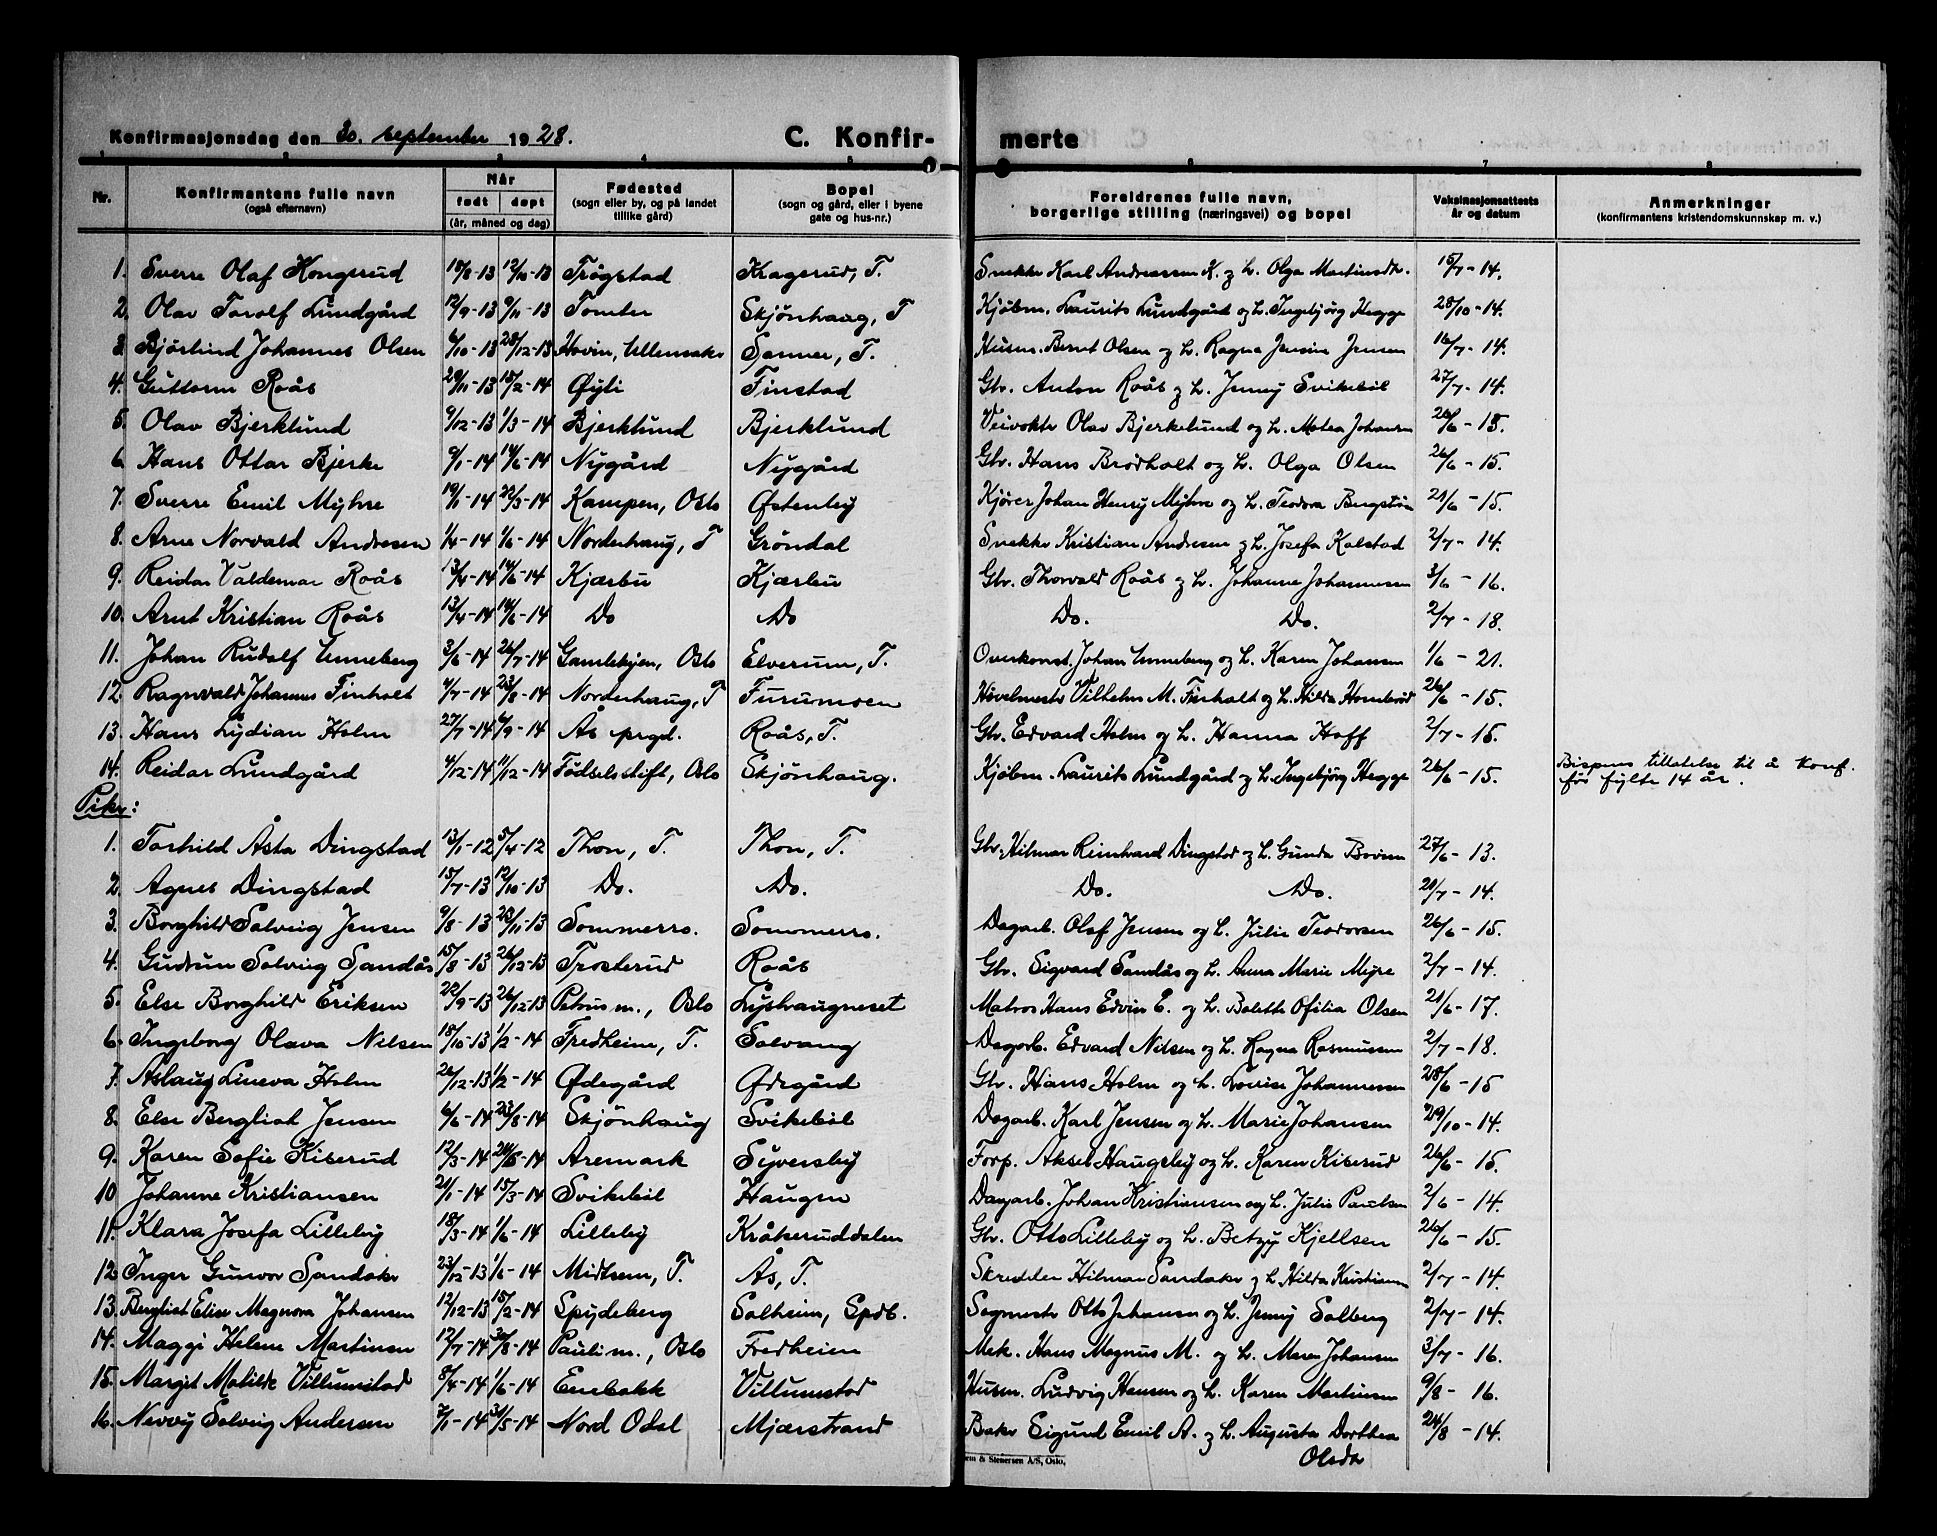 Konfirmasjonsdag den 30. september 1928. C. Konfir-merte
1 4 5 6 7 8
Nr. Konfirmantens fulle navn (også efternavn) Når født døpt (år, måned og dag) Fødested (sogn eller by, og på landet tillike gård) Bopel (sogn og gård, eller i byene gate og hus-nr.) Foreldrenes fulle navn, borgerlige stilling (næringsvei) og bopel Vaksinasjonsattests år og datum Anmerkninger (konfirmantens kristendomskunnskap m. v.)
1. Sverre Olaf Hongsrud 18/8-13 12/10-13 Trøgstad Kragerud, T. Snekker Karl Andreassen H. og h. Olga Martinsdtr. 15/7-14.
2. Olav Torolf Lundgård 12/9-13 9/11-13 Tomter Skjønhaug, T Kjøbm. Laurits Lundgård og h. Ingebjørg Hegge 28/10-14.
3. Bjørlind Johannes Olsen 6/10-13 28/12-13 Hovin, Ullensaker Sanner, T. Husm. Bernt Olsen og h. Ragna Jensine Jensen 16/7-14.
4. Guttorm Roås 29/11-13 15/2-14 Øyli Finstad Gbr. Anton Roås og h. Jenny Svikebøl 27/7-14.
5. Olav Bjerklund 9/12-13 1/3-14 Bjerklund Bjerklund Veivokter Olav Bjerkelund og h. Matea Johansen 26/6-15.
6. Hans Ottar Bjerke 9/1-14 14/6-14 Nygård Nygård Gbr. Hans Brødholt og h. Olga Olsen 26/6-15.
7. Sverre Emil Myhre 19/1-14 22/3-14 Kampen, Oslo Østenby Kjører Johan Henry Myhre og h. Teodora Bergstrøm 21/6-15.
8. Arne Norvald Andresen 1/4-14 1/6-14 Norderhaug, T Grøndal Snekker Kristian Andresen og h. Josefa Kolstad 2/7-14.
9. Reidar Valdemar Roås 13/4-14 14/6-14 Kjærbu Kjærbu Gbr. Thorvald Roås og h. Johanne Johannesen 3/6-16.
10. Arnt Kristian Roås 13/4-14 14/6-14 Do Do Do. Do. 2/7-18.
11. Johan Rudolf Unneberg 3/6-14 26/7-14 Gamlebyen, Oslo Elverum, T. Overkonst. Johan Unneberg og h. Karen Johansen 1/6-21.
12. Ragnvald Johannes Finholt 4/7-14 23/8-14 Norderhaug, T Furumoen Høvelmester Vilhelm M. Finholt og h. Hilda 26/6-15.
13. Hans Lydian Holm 27/7-14 6/9-14 Ås prgd. Roås, T. Gbr. Edvard Holm og h. Hanna Hoff 2/7-15.
14. Reidar Lundgård 4/12-14 11/12-14 Fødselsstift, Oslo Skjønhaug. Kjøbm. Laurits Lundgård og h. Ingebjørg Hegge 26/6-15. Bispens tillatelse til å konf. før fylte 14 år.
Piker:
1. Torhild Åsta Dingstad 13/1-12 5/4-12 Thon, T. Thon, T. Gbr. Hilmar Reinhard Dingstad og h. Gunda Bovim 27/6-13.
2. Agnes Dingstad 15/7-13 12/10-13 Do. Do. Do. Do. 21/7-14.
3. Borghild Solveig Jensen 9/8-13 23/11-13 Sommerro. Sommerro. Dagarb. Olaf Jensen og h. Julie Teodorsen 26/6-15.
4. Gudrun Solveig Sandås 15/8-13 26/12-13 Trosterud Roås Gbr. Sigvard Sandås og h. Anna Marie Myre 2/7-14.
5. Else Borghild Eriksen 22/9-13 26/12-13 Petrus m., Oslo Lyshaugneset Matros Hans Edvin E. og h. Bolette Ofilia Olsen 21/6-17.
6. Ingeborg Olava Nilsen 18/10-13 1/2-14 Fredheim, T. Solvang Dagarb. Edvard Nilsen og h. Ragna Rasmussen 2/7-18.
7. Aslaug Lineva Holm 26/12-13 1/2-14 Ødegård Ødegård Gbr. Hans Holm og h. Lovise Johannesen 28/6-15
8. Else Bergliot Jensen 6/6-14 23/8-14 Skjønhaug Svikebøl Dagarb. Karl Jensen og h. Marie Johansen 29/10-14.
9. Karen Sofie Kiserud 12/3-14 24/5-14 Aremark Syversby Forp. Aksel Haugsby og h. Karen Kiserud 26/6-15.
10 Johanne Kristiansen 21/1-14 15/3-14 Svikebøl Haugen Dagarb. Johan Kristiansen og h. Julie Paulsen 2/6-14.
11. Klara Josefa Lilleby 18/3-14 1/6-14 Lilleby Kråkeruddalen Gbr. Otto Lilleby og h. Betzy Kjellsen 26/6-15.
12. Inger Gunvor Sandaker 23/12-13 1/6-14 Midtsem, T. Ås, T. Skredder Hilmar Sandaker og h. Hilda Kristiansen 2/7-14.
13. Bergliot Elise Magnora Johansen 12/12-13 15/2-14 Spydeberg Solheim, Spdb. Sagmester Otto Johansen og h. Jenny Solberg 2/7-14.
14. Maggi Helene Martinsen 12/7-14 30/8-14 Pauli m., Oslo Fredheim Mek. Hans Magnus M. og h. Maren Johansen 3/7-16.
15. Margit Matilde Villumstad 8/4-14 1/6-14 Enebakk Villumstad Husm. Ludvig Hansen og h. Karen Martinsen 9/8-16.
16. Nevvy Solveig Andersen 7/1-14 31/5-14 Nord Odal Mjærstrand Baker Sigurd Emil A. og h. Augusta Dorthea Olsdtr 24/8-14.
& Stenersen A/S, Oslo.